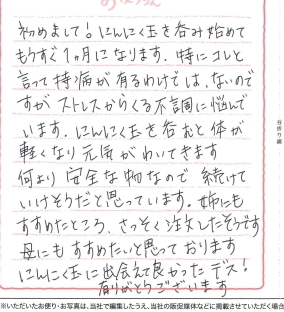 初めまして！にんにく玉を呑み始めて
もうすぐ1ヵ月になります。特にコレと
言って持病が有るわけでは、ないので
すが ストレスからくる不調に悩んで
います。にんにく玉を呑むと体が
軽くなり元気がわいてきます
何より安全な物なので 続けて
いけそうだと思っています。姉にも
すすめたところ、さっそく注文したそうです
母にもすすめたいと思っております
にんにく玉に出会えて良かったデス！
有りがとうございます
※いただいたお便り・お写真は、当社で編集したうえ、当社の販促媒体などに掲載させていただく場合